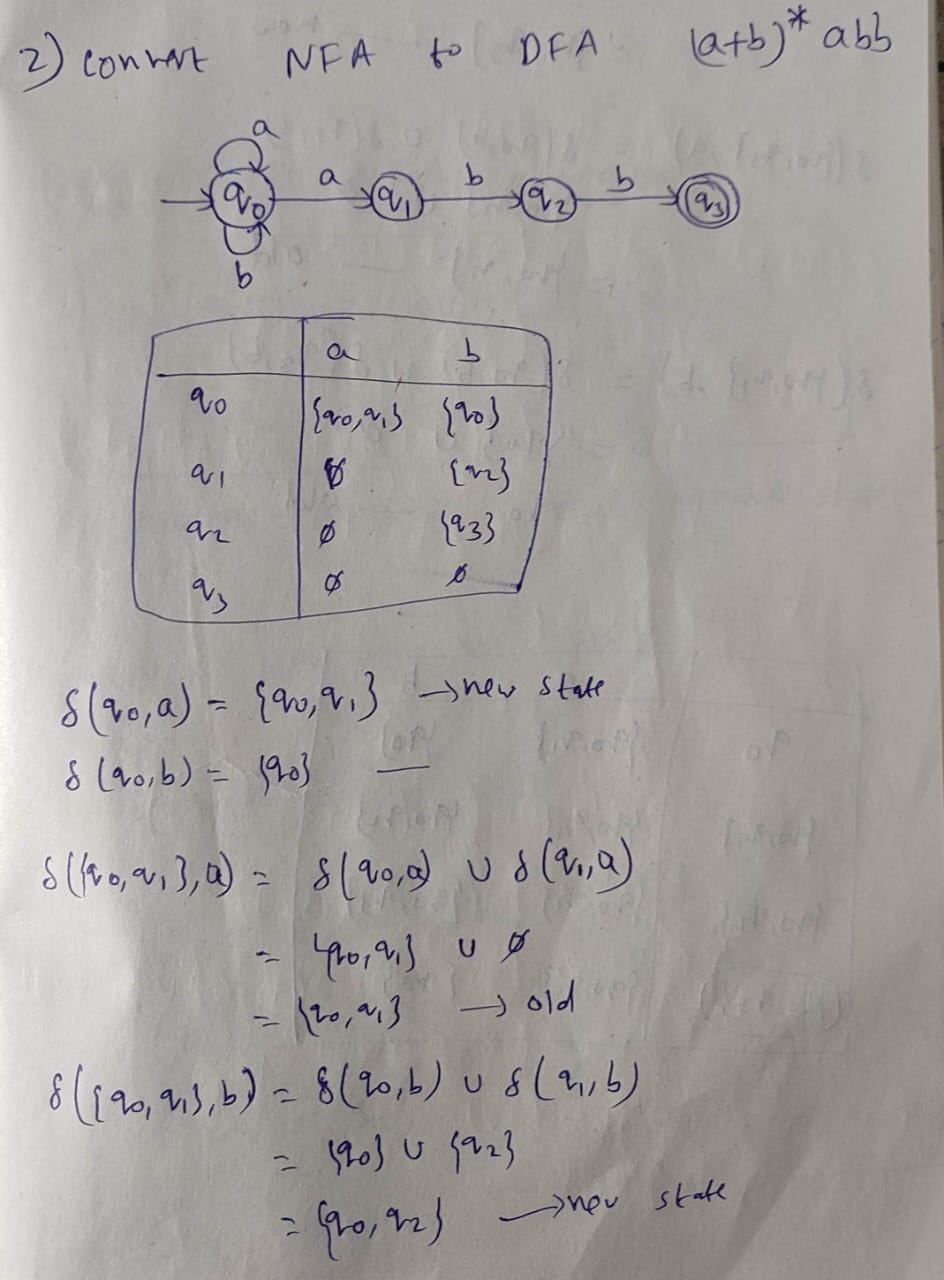 2) convert NFA to DFA (a+b)* abb
a
a b b
q0 q1 q2 q3
b
a b
q0 {q0,q1} {q0}
q1 ∅ {q2}
q2 ∅ {q3}
q3 ∅ ∅
δ(q0,a) = {q0,q1} → new state
δ(q0,b) = {q0} —
δ({q0,q1},a) = δ(q0,a) ∪ δ(q1,a)
= {q0,q1} ∪ ∅
= {q0,q1} → old
δ({q0,q1},b) = δ(q0,b) ∪ δ(q1,b)
= {q0} ∪ {q2}
= {q0,q2} → new state